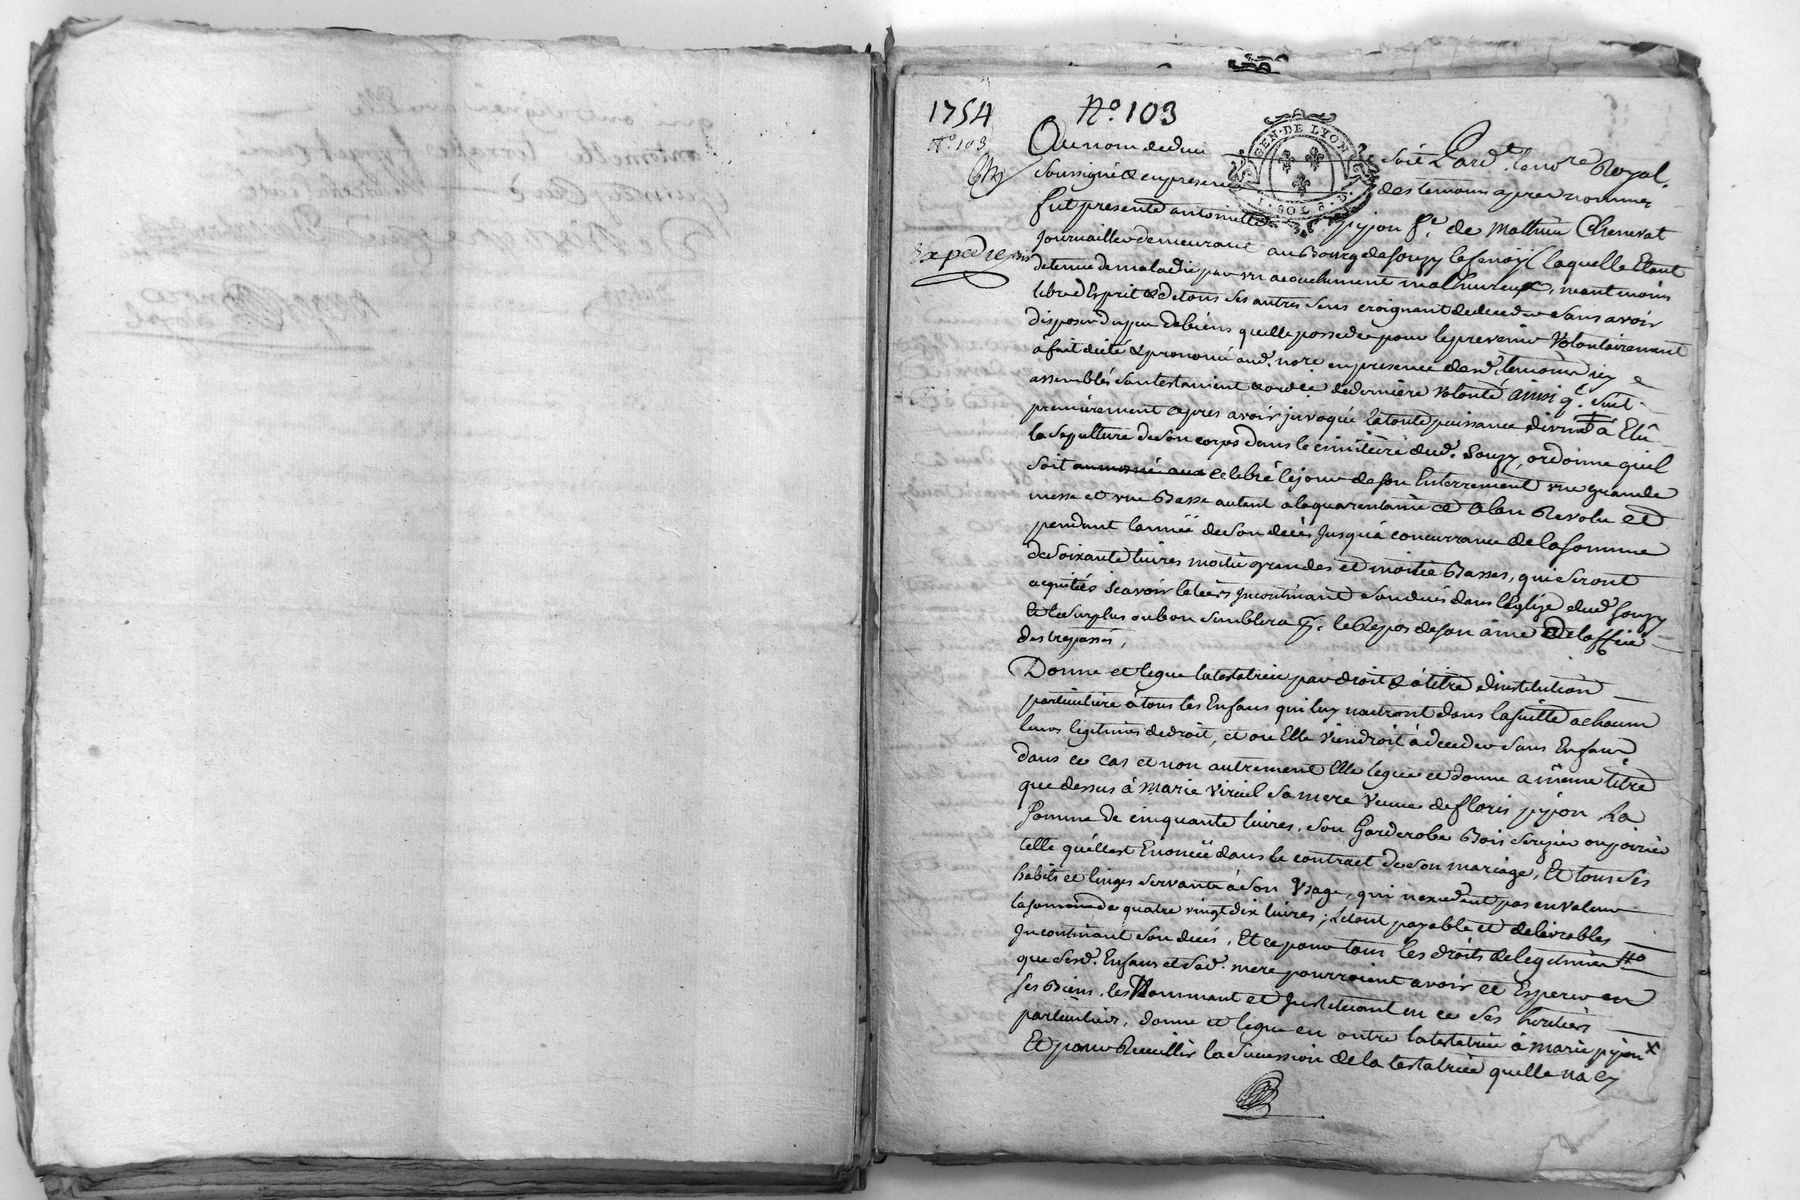 1754 N.o 103
N.o 103
GEN. DE LYON
1. SOL 8. D.
Expedié
Au nom de dieu soit Pardt. le nore Royal
soussigné & en presence des temoins apres nommes
fut presente antoinette pijon fe. de Mathieu Chenevat
Journallier demeurant au Bourg de souzy laquelle Etant
detenue de maladie par un acouchement malheureux, neantmoins
libre d'Esprit & de tous ses autres sens croignant de deceder sans avoir
disposer du peu de biens quelle possede pour le prevenir Volontairement
a fait dicté & prononcé aud. nore. en presence desd. temoins icy
assemblés son testament & ordce. de derniere volonté ainsi q. suit
premierement apres avoir jnvoqué la toute puissance divine a Elû
la sepulture de son corps dans le cimitiere dud. Souzy, ordonne quil
soit celebré le jour de son Enterrement une grande
messe et une Basse autant a la quarentaine et a lan Revolu et
pendant lannéé de son decés jusqu'a concurrance de la somme
de soixante livres moitie grandes et moitie Basses, qui seront
acquittés scavoir le tiers jncontinant son decés dans l'Eglize dud. Souzy
et le surplus ou bon semblera p. le Repos de son ame &
des trepassés,
Donne et legue la testatrice par droit & à titre d'institution
particuliere à tous les Enfans qui luy naitront dans la suitte a chacun
leurs legitimes de droit, et ou Elle viendroit à deceder sans Enfans
dans ce cas et non autrement Elle legue et donne a même titre
que dessus à Marie virieul sa mere veuve de floris pijon La
somme de cinquante livres, son Garderobe Bois serizier
telle quéllest Enoncéé dans le contract de son mariage, Et tous ses
habits et linges servants à son Usage, qui nexcedent pas en valeur
la somme de quatre vingt dix livres; Le tout payable et delivrables
jncontinant son decés, Et ce pour tous les droits de legitimes
que sesd. Enfans et sad. mere pourroient avoir et Esperer en
ses Biens, les Nommant et jnstituant en ce ses heritiers
particuliers, donne et legue en outre la testatrice à marie pijon x
Et pour Recuillir la sucession de la testatrice quelle na cy